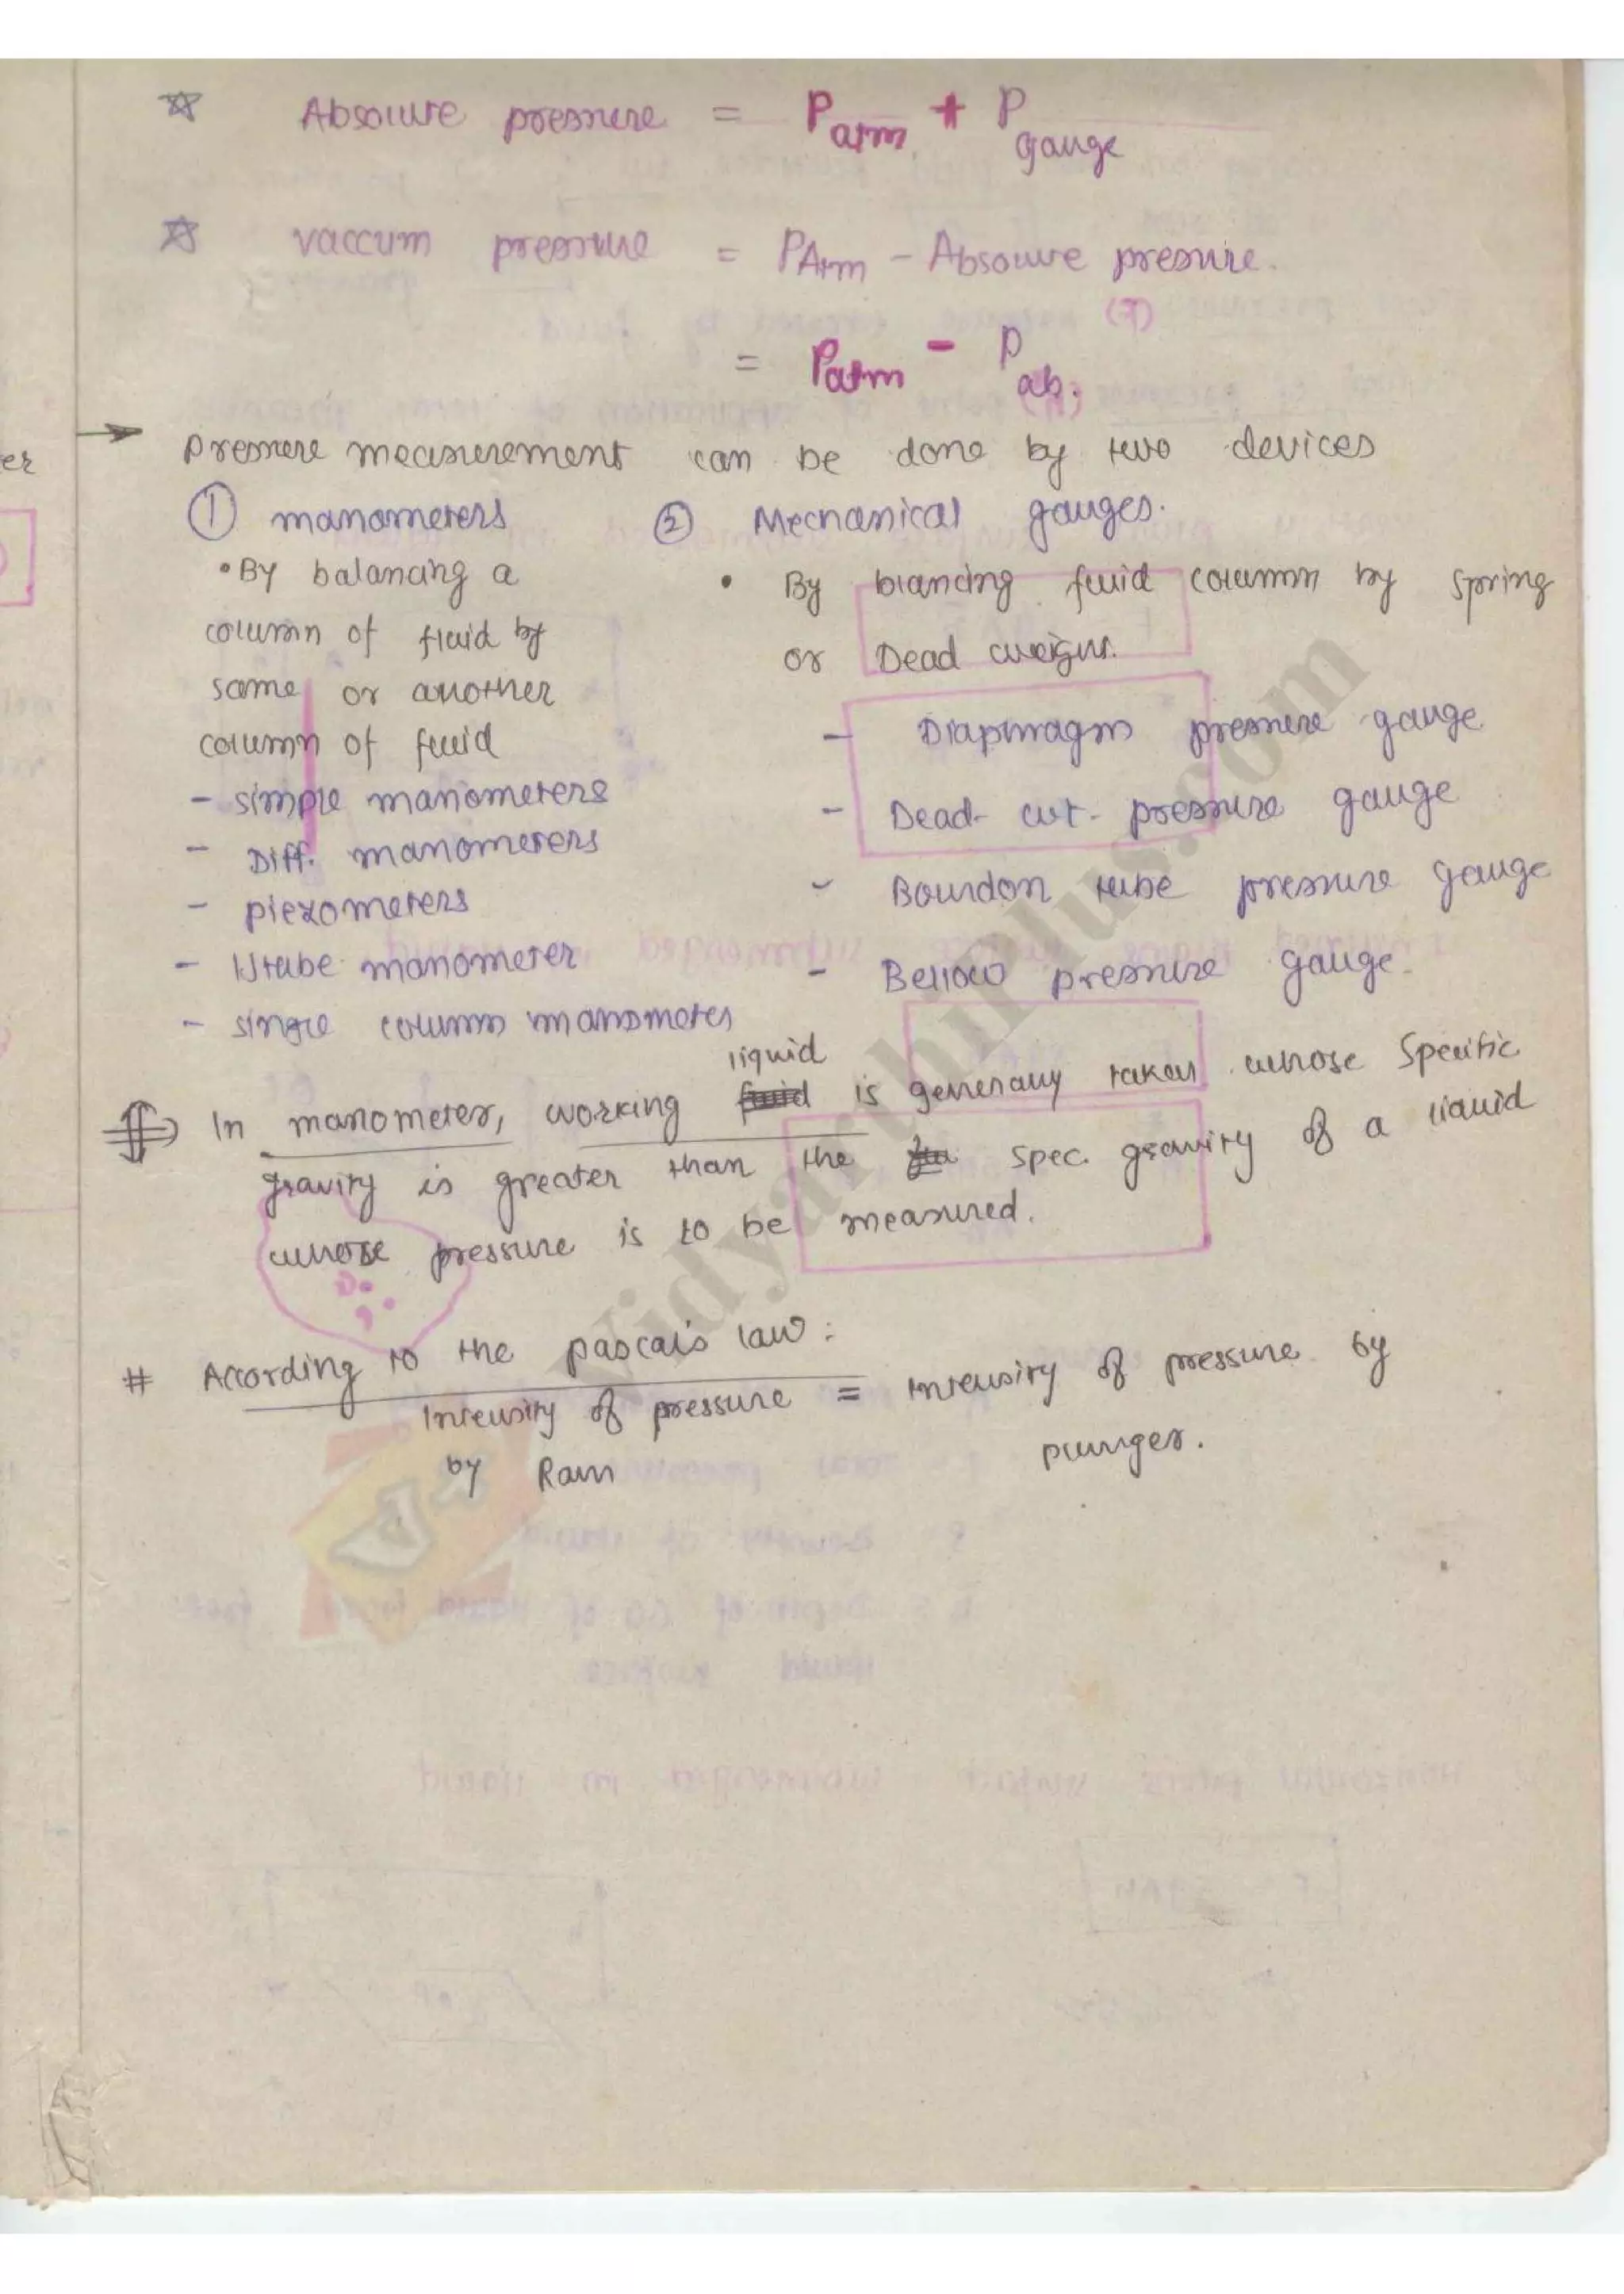 ☆ Absolute pressure = Patm + Pgauge
☆ vaccum pressure = PAtm - Absolute pressure.
= Patm - Pab.
→ pressure measurement can be done by two devices
① manometers
• By balancing a
column of fluid by
same or another
column of fluid
- simple manometers
- Diff. manometers
- piezometers
- Utube manometer
- single column manometer
② Mechanical gauges.
• By blancing fluid column by spring
or Dead weight.
- Diaphragm pressure gauge
- Dead- wt. pressure gauge
- Bourdon tube pressure gauge
- Bellow pressure gauge.
In manometer, working liquid is generally taken whose Specific
gravity is greater than the spec. gravity of a liquid
whose pressure is to be measured.
# According to the pascal's law:
Intensity of pressure = Intensity of pressure by
by Ram plunger.
VidyarthiPlus.com